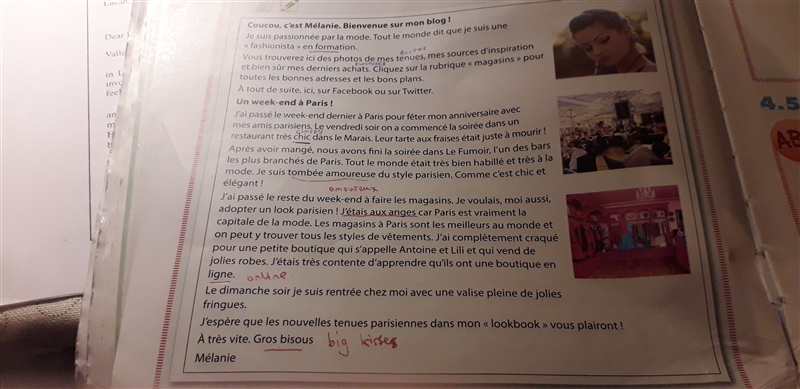 Coucou, c'est Mélanie. Bienvenue sur mon blog !
Je suis passionnée par la mode. Tout le monde dit que je suis une
« fashionista » en formation.
Vous trouverez ici des photos de mes tenues, mes sources d'inspiration
et bien sûr mes derniers achats. Cliquez sur la rubrique « magasins » pour
toutes les bonnes adresses et les bons plans.
À tout de suite, ici, sur Facebook ou sur Twitter.
Un week-end à Paris !
J'ai passé le week-end dernier à Paris pour fêter mon anniversaire avec
mes amis parisiens. Le vendredi soir on a commencé la soirée dans un
classy
restaurant très chic dans le Marais. Leur tarte aux fraises était juste à mourir !
Après avoir mangé, nous avons fini la soirée dans Le Fumoir, l'un des bars
les plus branchés de Paris. Tout le monde était très bien habillé et très à la
mode. Je suis tombée amoureuse du style parisien. Comme c'est chic et
élégant !
amoureux
J'ai passé le reste du week-end à faire les magasins. Je voulais, moi aussi,
adopter un look parisien ! J'étais aux anges car Paris est vraiment la
capitale de la mode. Les magasins à Paris sont les meilleurs au monde et
on peut y trouver tous les styles de vêtements. J'ai complètement craqué
pour une petite boutique qui s'appelle Antoine et Lili et qui vend de
jolies robes. J'étais très contente d'apprendre qu'ils ont une boutique en
ligne. online
Le dimanche soir je suis rentrée chez moi avec une valise pleine de jolies
fringues.
J'espère que les nouvelles tenues parisiennes dans mon « lookbook » vous plairont !
À très vite. Gros bisous big kisses
Mélanie
4.5
AB